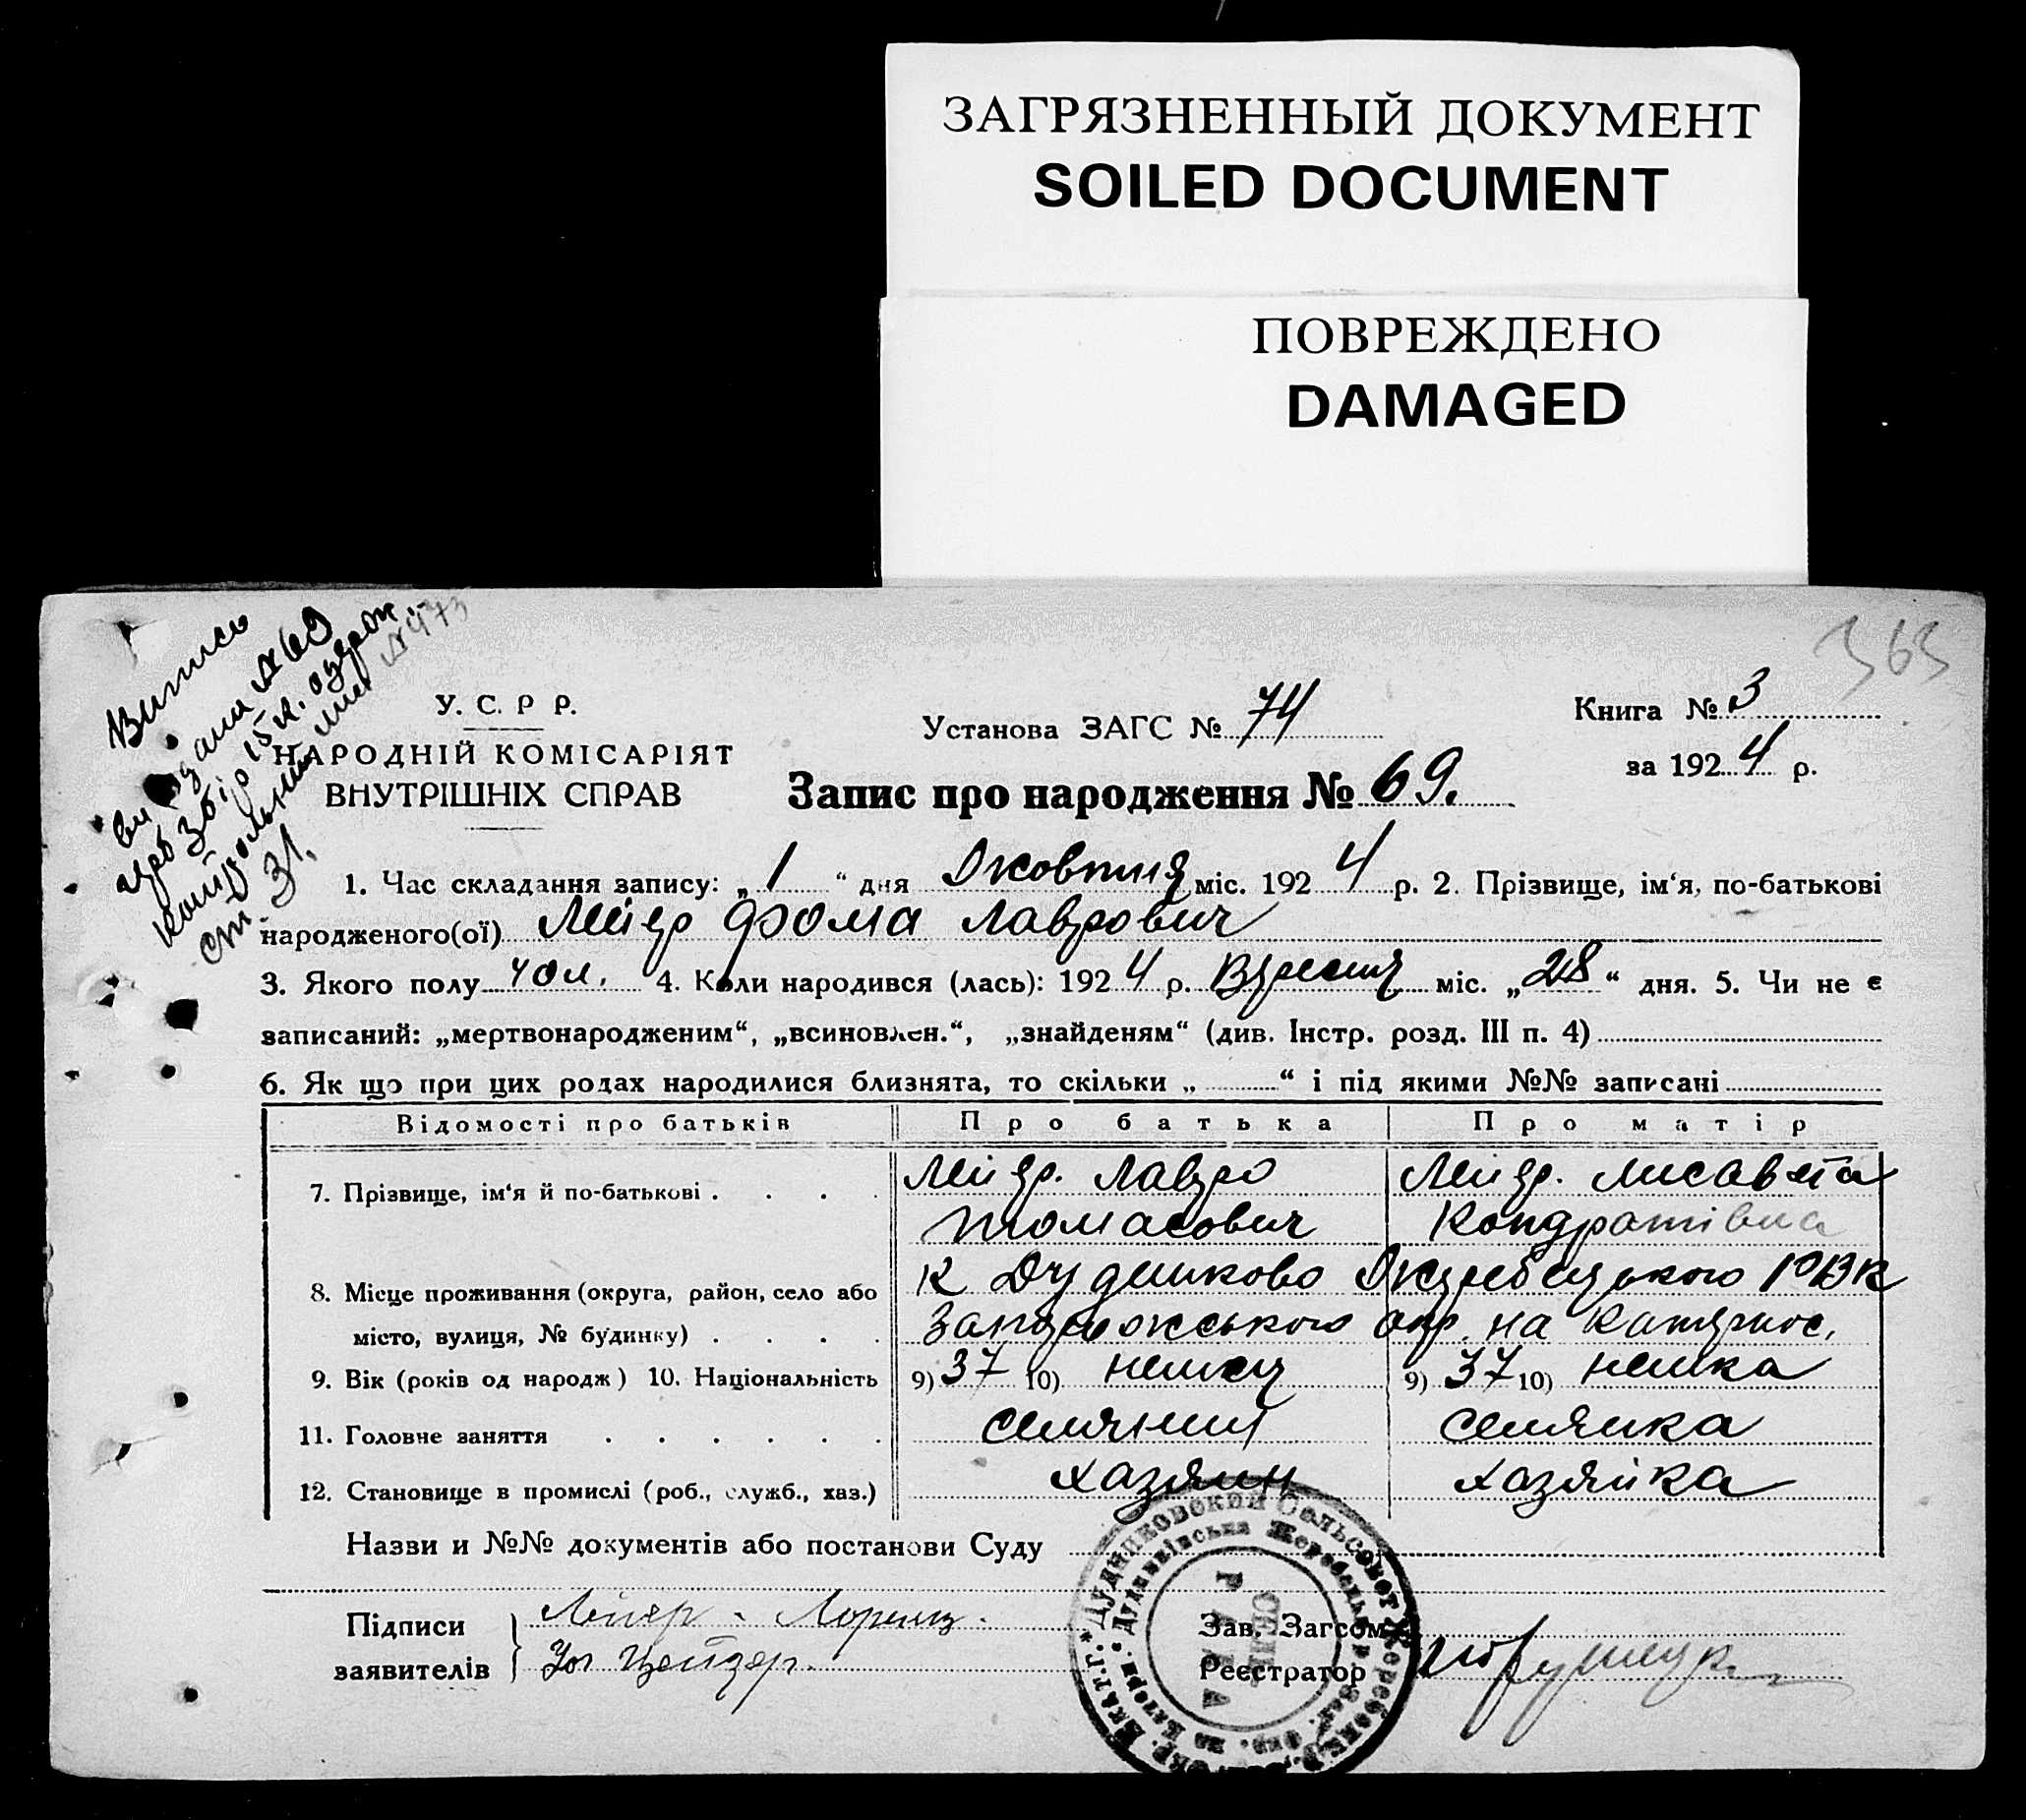 ЗАГРЯЗНЕННЫЙ ДОКУМЕНТ
SOILED DOCUMENT
ПОВРЕЖДЕНО
DAMAGED
363
Випись
видана №69
Книга № 3
У. С. Р Р.
Установа ЗАГС № 74
за 1924 р.
НАРОДНІЙ КОМІСАРІЯТ
ВНУТРІШНІХ СПРАВ
Запис про народження № 69.
ст. 31.
1. Час складання запису: „1“ дня Жовтня міс. 1924 р. 2. Прізвище, ім‘я, по-батькові
народженого(ої) Мейер Фома Лаврович
3. Якого полу чол. 4. Коли народився (лась): 1924 р. Вересня міс. „28“ дня. 5. Чи не є
записаний: „мертвонародженим“, „всиновлен.“, „знайденям“ (див. Інстр. розд. III п. 4)
6. Як що при цих родах народилися близнята, то скільки „ “ і під якими №№ записані
Відомості про батьків Про батька Про матір
7. Прізвище, ім‘я й по-батькові . . . . Мейер. Лавро Мейер. Лисавета
Томасович Кондратівна
8. Місце проживання (округа, район, село або к Дудников Жеребецького РВК
місто, вулиця, № будинку) . . . . Запорожського окр. на Катеринос.
9. Вік (років од народж) 10. Національність 9) 37 10) немец 9) 37 10) немка
11. Головне заняття . . . . . . селянин селянка
12. Становище в промислі (роб., служб., хаз.) хазяин хазяйка
Назви и №№ документів або постанови Суду
Підписи Мейер - Лоренц.
заявителів Цейзер.
Зав. Загсом
Реєстратор
ДУДНИКОВСКИЙ Сельсовет Жеребецк.
СЕЛЬ
РАДА